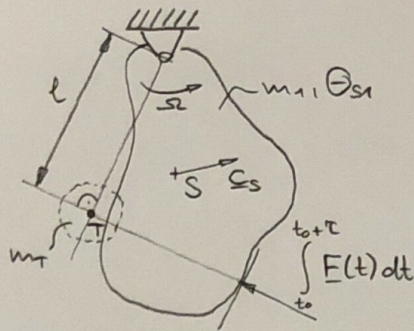 l
Ω
m₁, Θ_S1
S
c_S
m_T
T
∫_{t₀}^{t₀+τ} F(t) dt